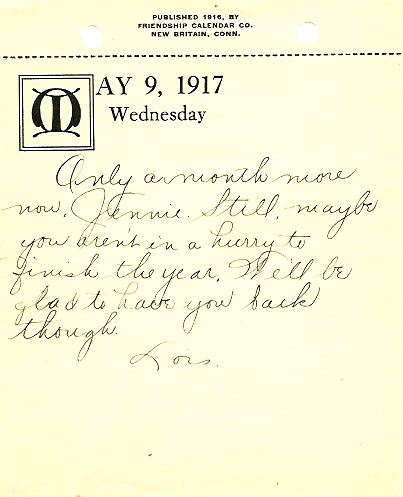 PUBLISHED 1916, BY
FRIENDSHIP CALENDAR CO.
NEW BRITAIN, CONN.
MAY 9, 1917
Wednesday
Only a month more
now, Jennie. Still, maybe
you aren't in a hurry to
finish the year. We'll be
glad to have you back
though.
Lois.